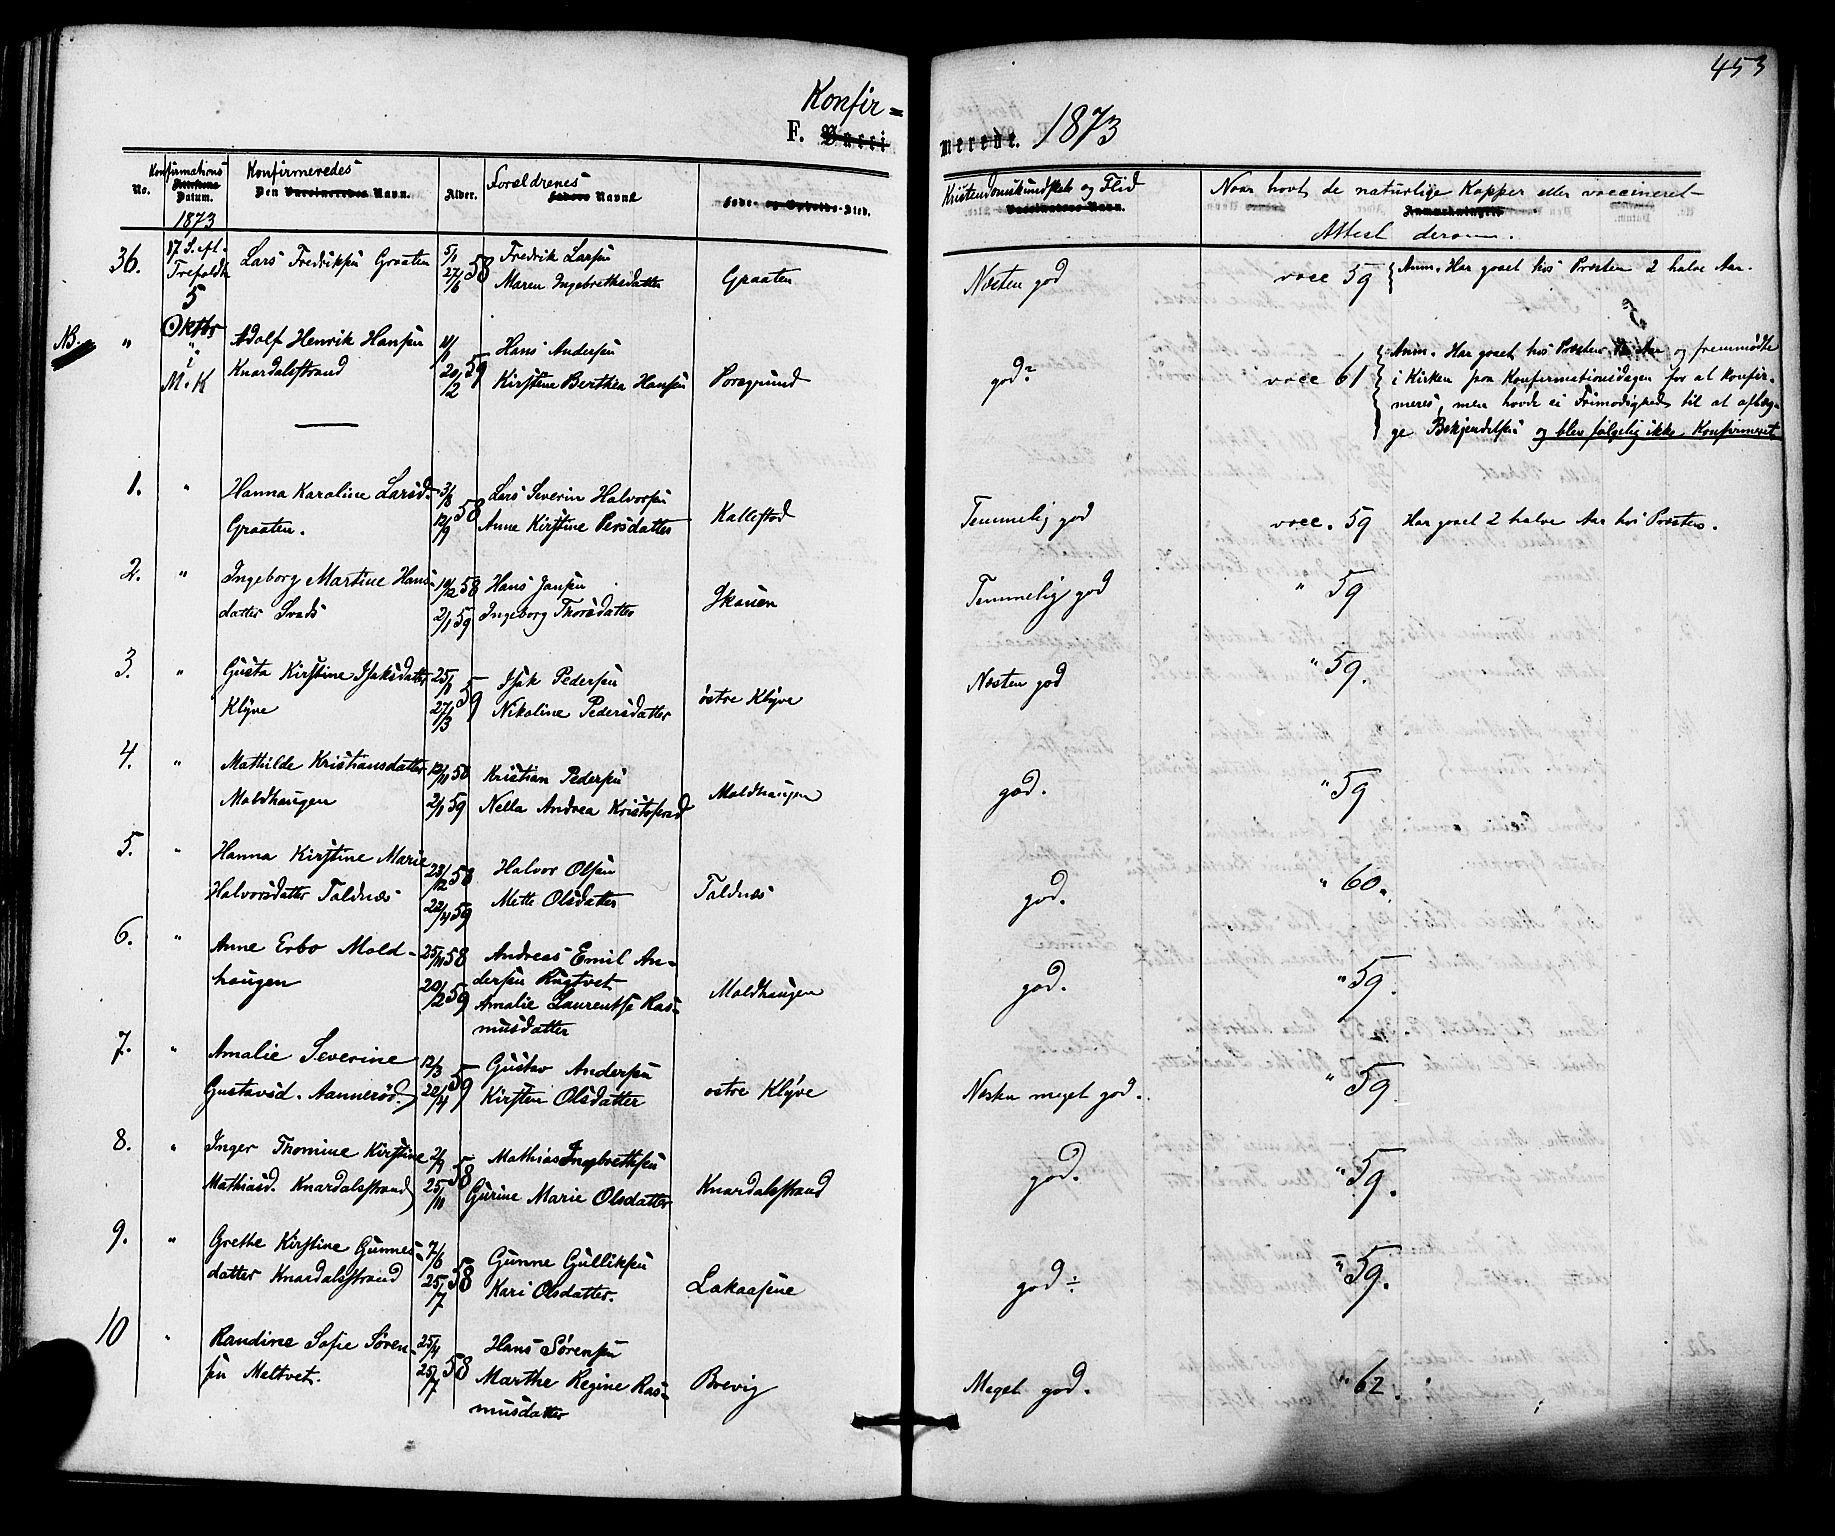 453
Konfir=
F. Vacci
merede. 1873
No.
Konfirmations
Datum.
1873
Konfirmeredes
Den Vaccineredes Navn.
Alder.
Forældrenes
Faders Navn.
Føde- og Opholds-Sted.
Kristendomskundskab og Flid
Vaccinators Navn.
Naar havt de naturlige Kopper eller vaccineret
Anmærkninger.
Attest derom.
36.
17. S. eft.
Trefoldh
5
Oktbr
i
M. K
Lars Fredriksen Graaten
5/1
27/6 58
Fredrik Larsen
Maren Ingebrethsdatter
Graaten
Næsten god
vacc 59
Anm. Har gaaet hos Præsten 2 halve Aar.
NB.
"
Adolf Henrik Hansen
Knardalsstrand
11/1
20/2 59
Hans Andersen
Kirstine Berthea Hansen
Porsgrund
god
vacc 61
3
Anm. Har gaaet hos Præsten Aar og fremmødte
i Kirken paa Konfirmationsdagen for at konfir-
meres, men havde ei Frimodighed til at aflæg-
ge Bekjendelsen og blev følgelig ikke Konfirmeret
1.
"
Hanna Karoline Larsd.
Graaten.
3/8
12/9 58
Lars Severin Halvorsen
Anne Kirstine Persdatter
Kallestad
Temmelig god
vacc. 59
Har gaaet 2 halve Aar hos Præsten.
2.
"
Ingeborg Martine Hans-
datter
58
2/1 59
Hans Jansen
Ingeborg Thorsdatter
Skauen
Temmelig god
" 59
3.
"
Gusta Kirstine Isaksdatter
Klyve
25/1
27/3 59
Isak Pedersen
Nikoline Pedersdatter
østre Klyve
Næsten god
" 59.
4.
"
Mathilde Kristiansdatter
Moldhaugen
58
2/1 59
Kristian Pedersen
Nella Andrea Kristofersd
Moldhaugen
god.
" 59
5.
"
Hanna Kirstine Marie
Halvorsdatter Taldnæs
23/12 58
22/4 59
Halvor Olsen
Mette Olsdatter
Taldnæs
god.
" 60.
6.
"
Anne Erbo Mold-
haugen
25/11 58
20/2 59
Andreas Emil An-
dersen Rugtvet
Amalie Laurentse Ras-
musdatter
Moldhaugen
god.
" 59.
7.
"
Amalie Severine
Gustavsd. Aannerød.
12/3
22/4 59
Gustav Andersen
Kirsten Olsdatter
østre Klyve
Næsten meget god.
" 59.
8.
"
Inger Thomine Kirstine
Mathiasd. Knardalsstrand
2/9
25/10 58
Mathias Ingebrethsen
Gurine Marie Olsdatter
Knardalsstrand
god.
" 59.
9.
"
Grethe Kirstine Gunnes-
datter Knardalsstrand
7/6
25/7 58
Gunne Gulliksen
Kari Olsdatter.
Lakaasene
god
" 59.
10
"
Randine Sofie Søren-
sen Meltvet.
25/4
25/7 58
Hans Sørensen
Marthe Regine Ras-
musdatter
Brevig
Meget god.
" 62.